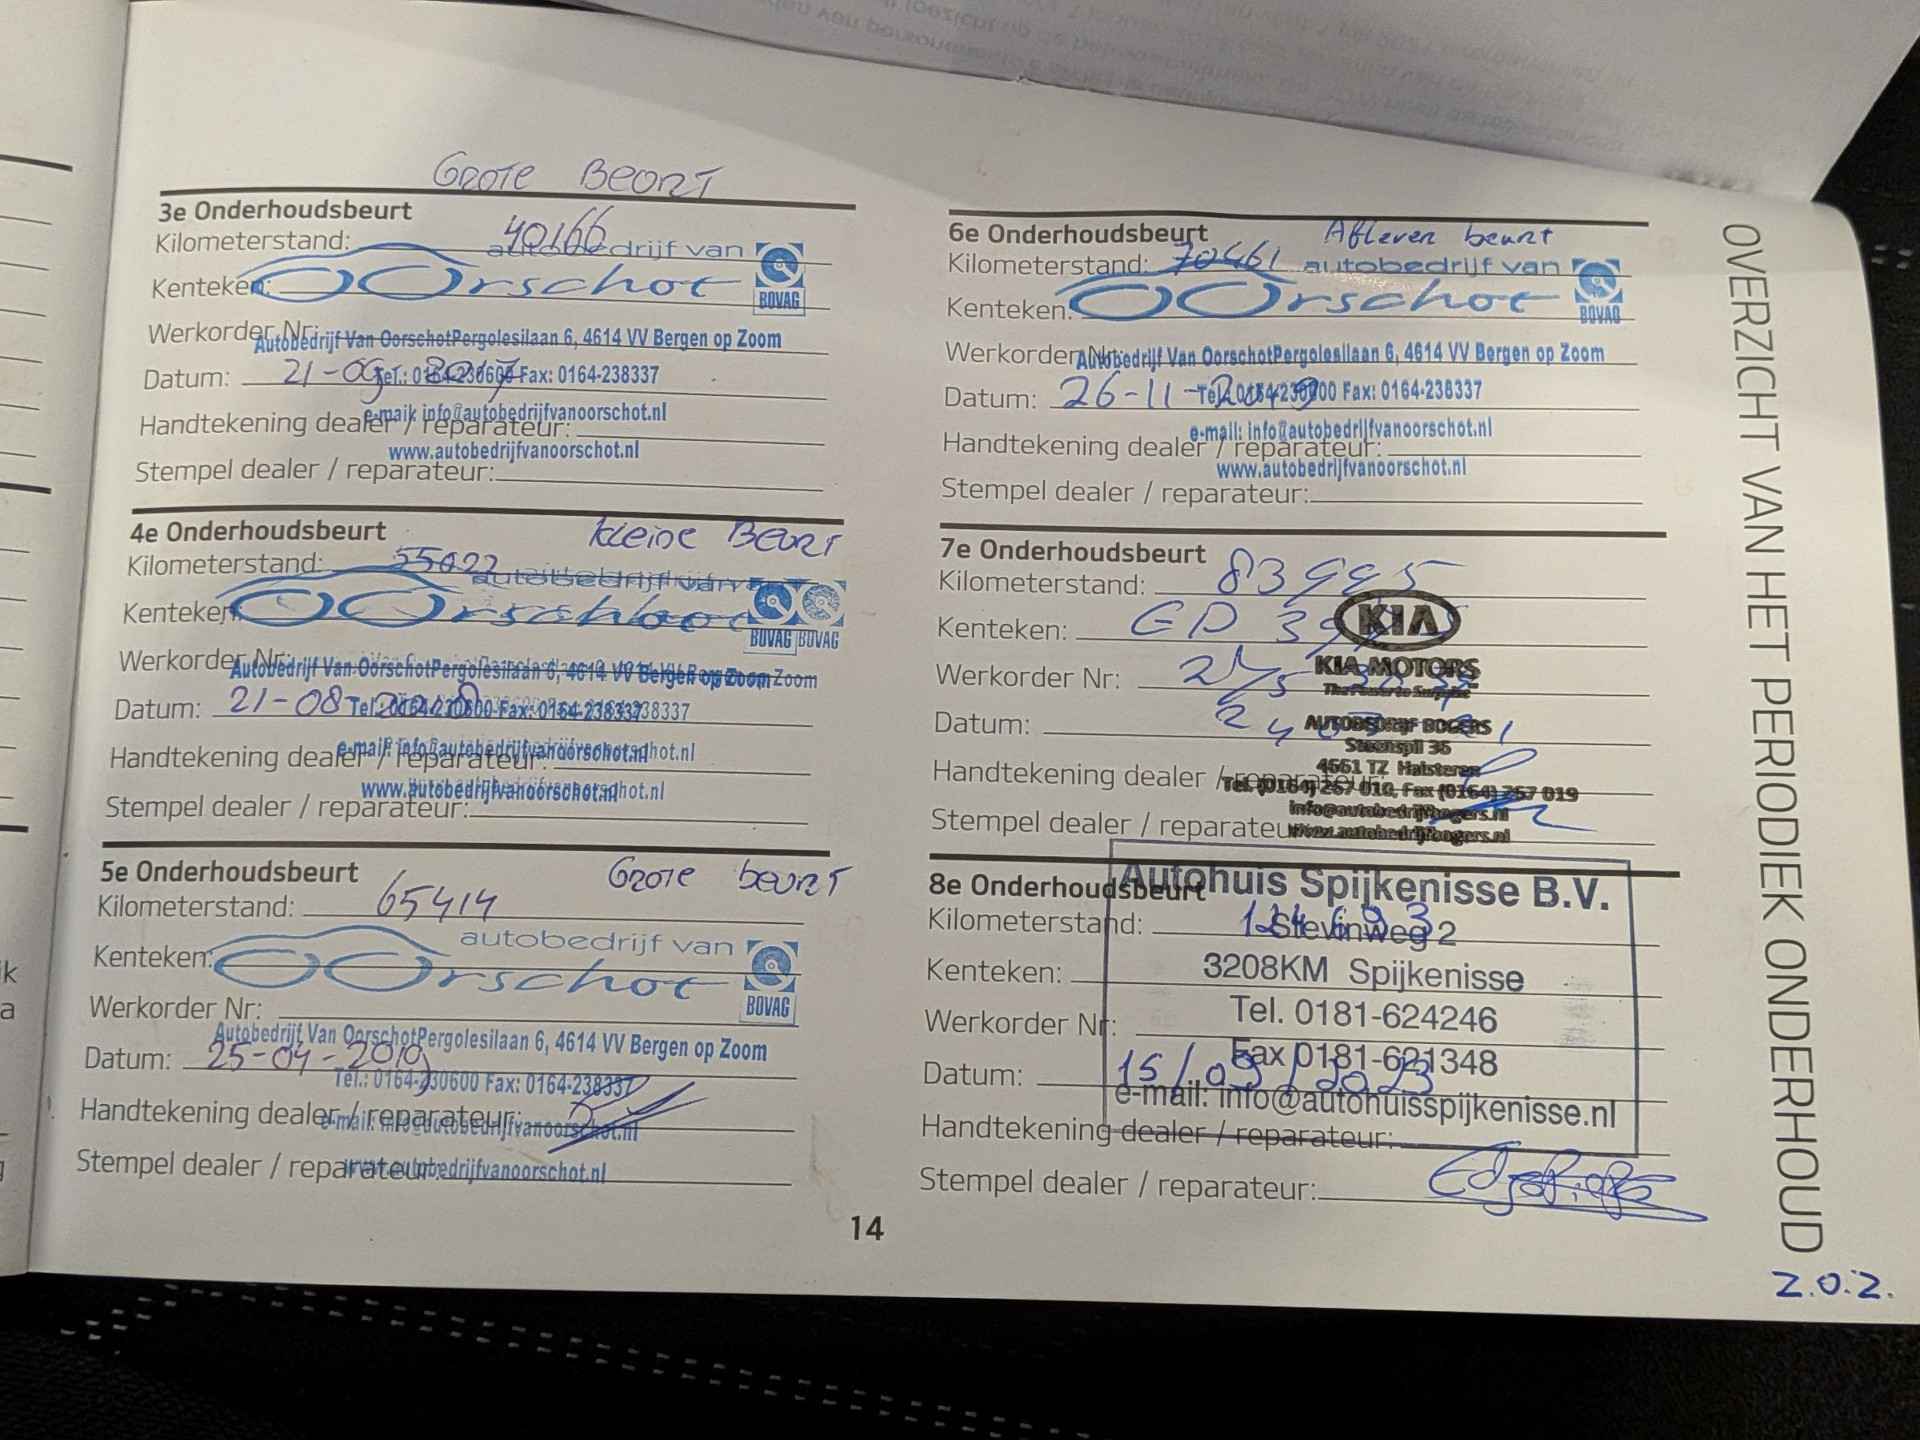 GROTE BEURT
3e Onderhoudsbeurt
Kilometerstand: 40166
autobedrijf van
Oorschot
BOVAG
Kenteken:
Werkorder Nr:
Autobedrijf Van OorschotPergolesilaan 6, 4614 VV Bergen op Zoom
Datum: 21-09-2017
Tel.: 0164-230600 Fax: 0164-238337
e-mail: info@autobedrijfvanoorschot.nl
Handtekening dealer / reparateur:
www.autobedrijfvanoorschot.nl
Stempel dealer / reparateur:
4e Onderhoudsbeurt Kleine BEURT
Kilometerstand:
autobedrijf van
Kenteken:
Oorschot
BOVAG BOVAG
Werkorder Nr:
Autobedrijf Van OorschotPergolesilaan 6, 4614 VV Bergen op Zoom
Datum: 21-08-2018
Tel.: 0164-230600 Fax: 0164-238337
Handtekening dealer / reparateur:
e-mail: info@autobedrijfvanoorschot.nl
www.autobedrijfvanoorschot.nl
Stempel dealer / reparateur:
5e Onderhoudsbeurt GROTE beurt
Kilometerstand: 65414
autobedrijf van
Kenteken:
Oorschot
BOVAG
Werkorder Nr:
Autobedrijf Van OorschotPergolesilaan 6, 4614 VV Bergen op Zoom
Datum: 25-04-2019
Tel.: 0164-230600 Fax: 0164-238337
Handtekening dealer / reparateur:
e-mail: info@autobedrijfvanoorschot.nl
Stempel dealer / reparateur:
www.autobedrijfvanoorschot.nl
6e Onderhoudsbeurt Aflever beurt
Kilometerstand: 70461
autobedrijf van
Kenteken:
Oorschot
BOVAG
Werkorder Nr:
Autobedrijf Van OorschotPergolesilaan 6, 4614 VV Bergen op Zoom
Datum: 26-11-2019
Tel.: 0164-230600 Fax: 0164-238337
e-mail: info@autobedrijfvanoorschot.nl
Handtekening dealer / reparateur:
www.autobedrijfvanoorschot.nl
Stempel dealer / reparateur:
7e Onderhoudsbeurt
Kilometerstand: 83995
KIA
Kenteken:
KIA MOTORS
The Power to Surprise
Werkorder Nr:
Datum:
AUTOBEDRIJF BOGERS
Steenspil 36
4661 TZ Halsteren
Handtekening dealer / reparateur:
Tel. (0164) 257 010, Fax (0164) 257 019
info@autobedrijfbogers.nl
Stempel dealer / reparateur:
www.autobedrijfbogers.nl
8e Onderhoudsbeurt
Autohuis Spijkenisse B.V.
Kilometerstand:
Stevinweg 2
Kenteken:
3208KM Spijkenisse
Werkorder Nr:
Tel. 0181-624246
Fax 0181-621348
Datum: 15/09/2023
e-mail: info@autohuisspijkenisse.nl
Handtekening dealer / reparateur:
Stempel dealer / reparateur:
14
OVERZICHT VAN HET PERIODIEK ONDERHOUD
Z.O.Z.